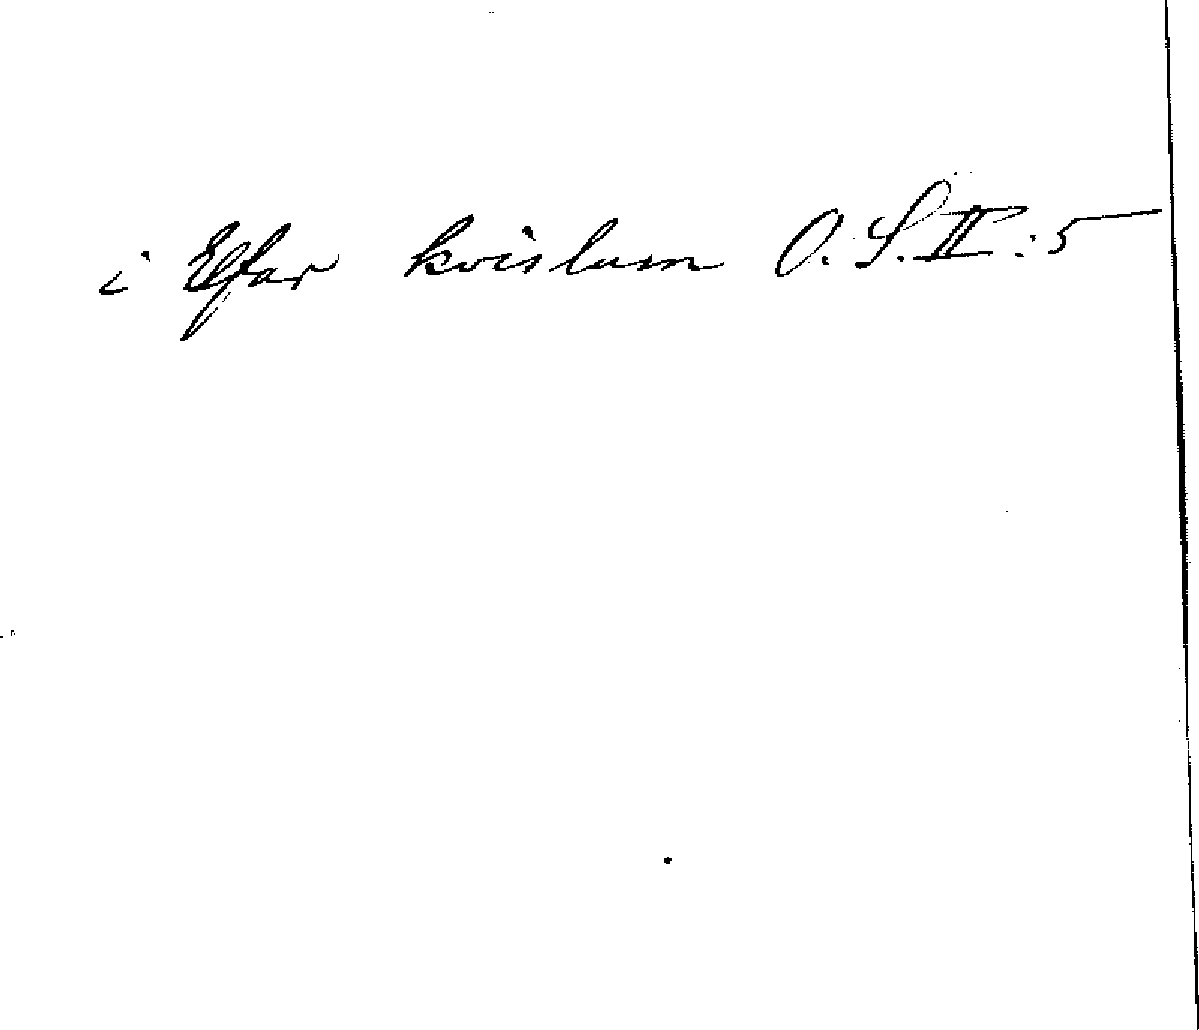 i Elfar kvislum O.S. II:5